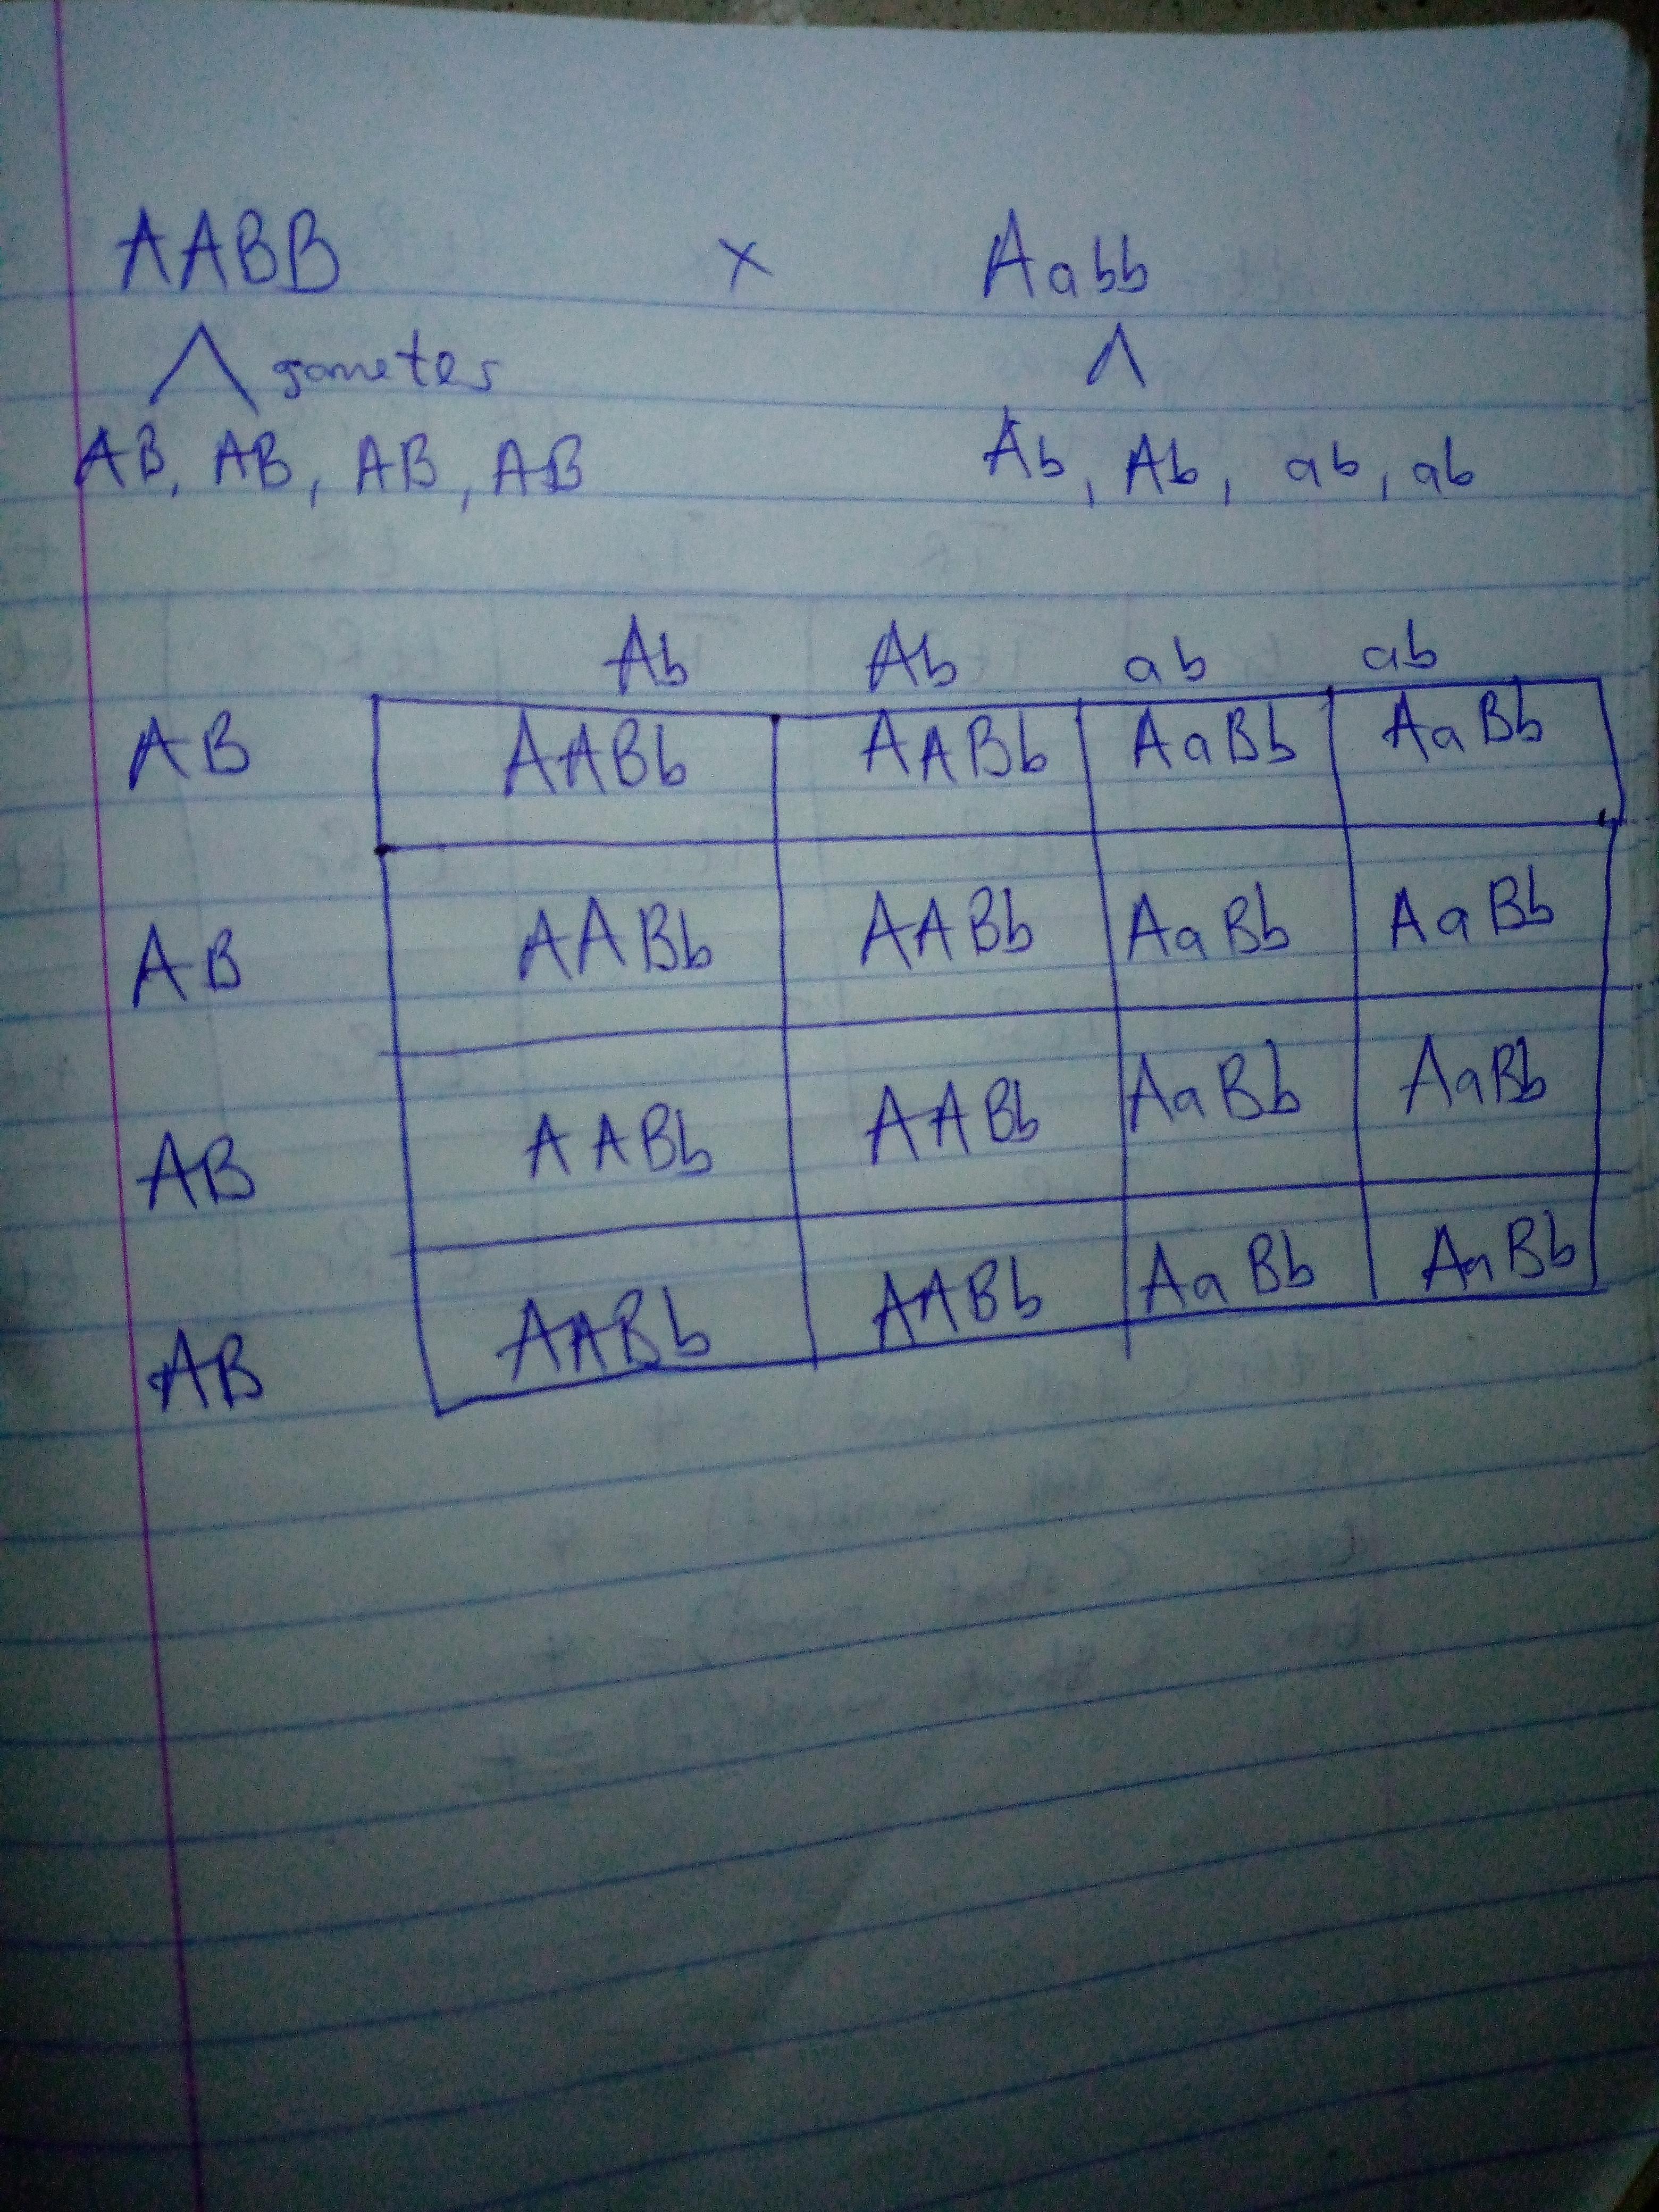 AABB x Aabb
gametes
AB, AB, AB, AB Ab, Ab, ab, ab
Ab Ab ab ab
AB AABb AABb AaBb AaBb
AB AABb AABb AaBb AaBb
AB AABb AABb AaBb AaBb
AB AABb AABb AaBb AaBb